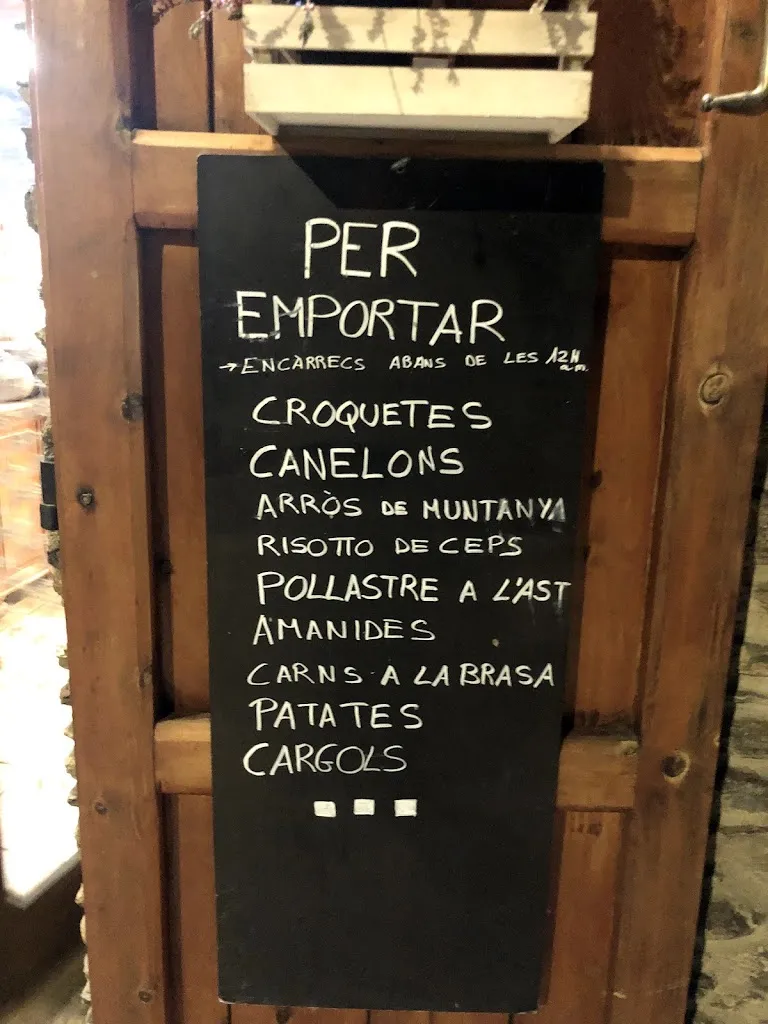 PER
EMPORTAR
→ ENCÀRRECS ABANS DE LES 12H a.m.
CROQUETES
CANELONS
ARRÒS DE MUNTANYA
RISOTTO DE CEPS
POLLASTRE A L'AST
AMANIDES
CARNS A LA BRASA
PATATES
CARGOLS
...